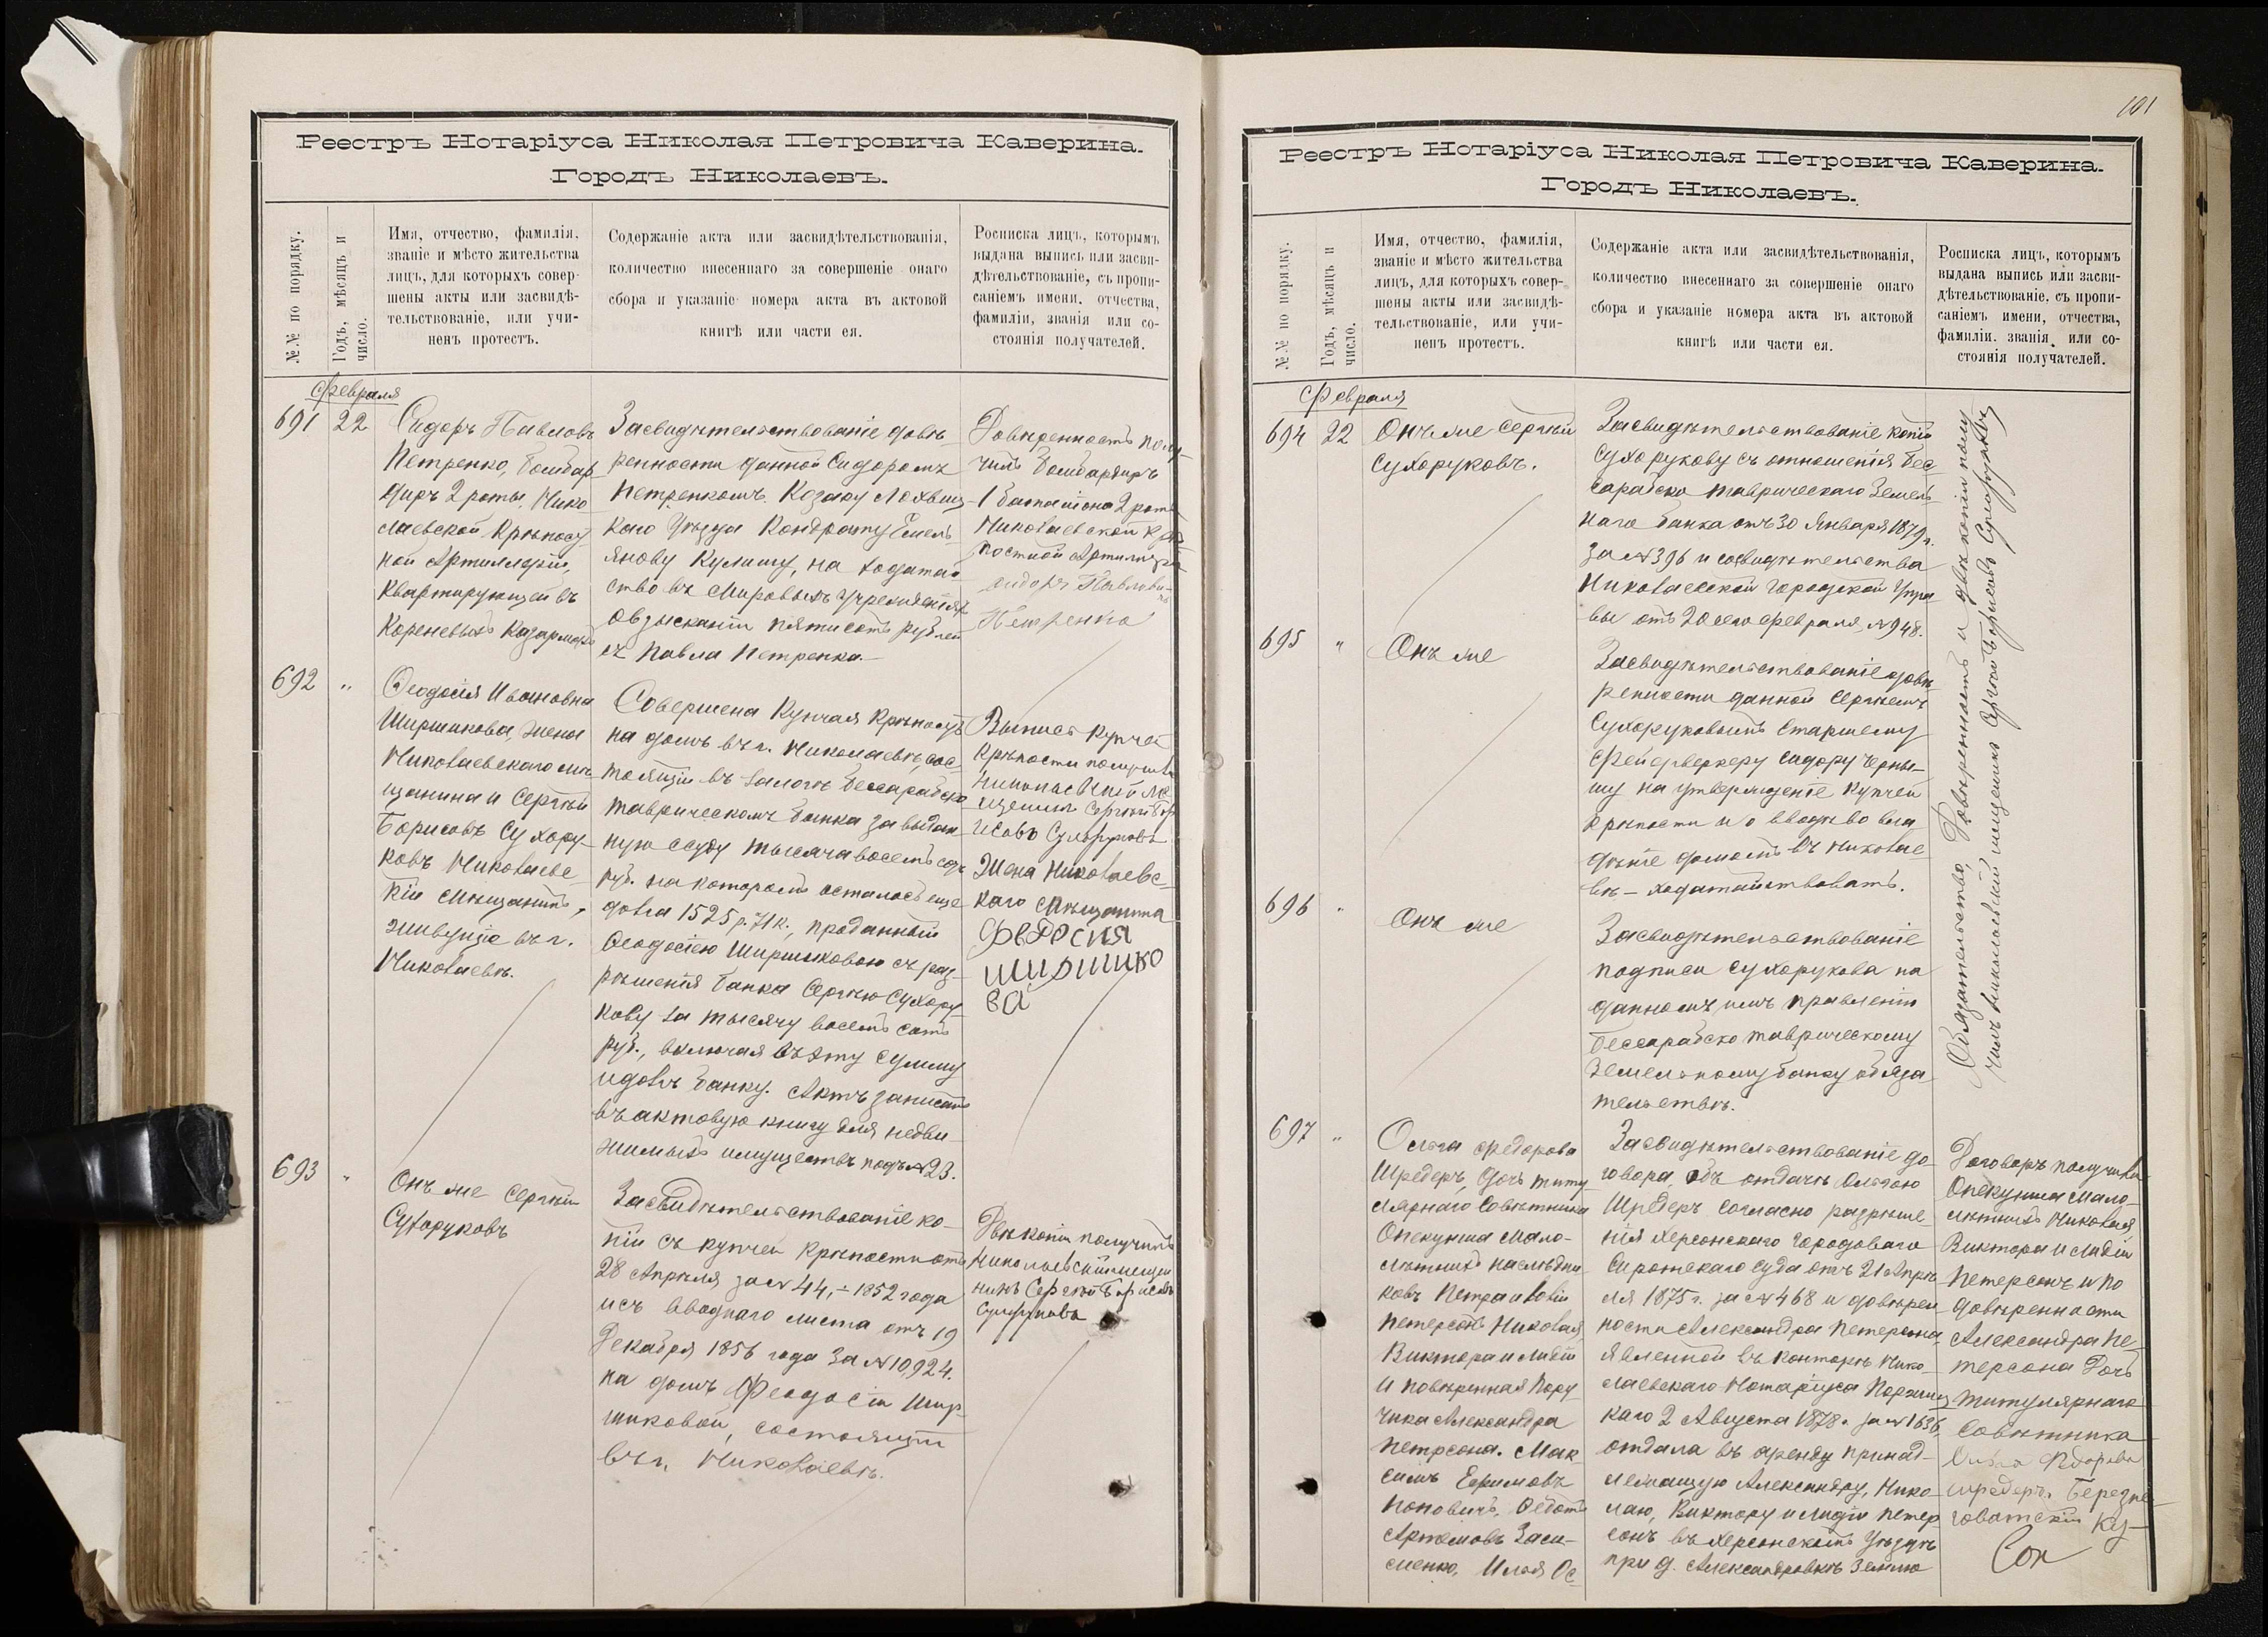 Реестръ Нотаріуса Николая Петровича Каверина.
Городъ Николаевъ.
№№ по порядку.
Годъ, мѣсяцъ и
число.
Имя, отчество, фамилія,
званіе и мѣсто жительства
лицъ, для которыхъ совер-
шены акты или засвидѣ-
тельствованіе, или учи-
ненъ протестъ.
Содержаніе акта или засвидѣтельствованія,
количество внесеннаго за совершеніе онаго
сбора и указаніе номера акта въ актовой
книгѣ или части ея.
Росписка лицъ, которымъ
выдана выпись или засви-
дѣтельствованіе, съ пропи-
саніемъ имени, отчества,
фамиліи, званія или со-
стоянія получателей.
Февраля
691 22
Сидоръ Павловъ
Петренко, бомбар
диръ 2 роты, Нико
лаевской Крѣпост
ной Артиллеріи,
Квартирующей въ
Кореневыхъ Казармахъ
Засвидѣтельствованіе довѣ-
ренности данной Сидоромъ
Петренкомъ Козаку Лохвиц-
каго Уѣзда Кондрату Емель
янову Кулишу, на ходатай-
ство въ Мировыхъ Учрежденіяхъ
о взысканіи пятисотъ рублей
съ Павла Петренка.
Довѣренность полу-
чилъ бомбардиръ
1 баталіона 2 роты
Николаевской Крѣ
постной Артилле
сидоръ Павлови
Петренко
692 "
Ѳеодосія Ивановна
Ширшикова, жена
Николаевскаго мѣ
щанина и Сергѣй
Борисовъ Сухору-
ковъ Николаевс-
кій мѣщанинъ,
живущіе въ г.
Николаевѣ.
Совершена Купчая Крѣпость
на домъ въ г. Николаевѣ, сос-
тоящій въ залогѣ Бессарабско
таврическомъ банка за выдан
ную ссуду тысяча восемь сотъ
руб. на которомъ осталось еще
долга 1525 р. 71 к., проданный
Ѳеодосіею Ширшиковою съ раз-
рѣшенія банка Сергѣю Сухору
кову за тысячу восемь сотъ
руб., включая въ эту сумму
и долгъ банку. Актъ записанъ
въ актовую книгу для недви
жимыхъ имуществъ подъ № 23.
Выпись купчей
крѣпости получили
Николаевскій мѣ
щанинъ Сергѣй Бор
исовъ Сухоруковъ
Жена Николаевс-
каго мѣщанина
Федосия
ширшико
ва
693 "
Онъ же Сергѣй
Сухоруковъ
Засвидѣтельствованіе ко-
піи съ купчей крѣпости отъ
28 Апрѣля за № 44, 1852 года
и съ вводнаго листа отъ 19
Декабря 1856 года за № 10,924.
на домъ Феодосіи Шир-
шиковой, состоящій
въ г. Николаевѣ.
Двѣ копіи получилъ
Николаевскій мещан
нинъ Сергѣй Борисовъ
Сухоруковъ
101
Реестръ Нотаріуса Николая Петровича Каверина.
Городъ Николаевъ.
№№ по порядку.
Годъ, мѣсяцъ и
число.
Имя, отчество, фамилія,
званіе и мѣсто жительства
лицъ, для которыхъ совер-
шены акты или засвидѣ-
тельствованіе, или учи-
ненъ протестъ.
Содержаніе акта или засвидѣтельствованія,
количество внесеннаго за совершеніе онаго
сбора и указаніе номера акта въ актовой
книгѣ или части ея.
Росписка лицъ, которымъ
выдана выпись или засви-
дѣтельствованіе, съ пропи-
саніемъ имени, отчества,
фамиліи, званія или со-
стоянія получателей.
Февраля
694 22
Онъ же Сергѣй
Сухоруковъ.
Засвидѣтельствованіе копіи
Сухорукову съ отношенія Бес
сарабско таврическаго Земель
наго банка отъ 30 Января 1879 г.
за № 396 и свидѣтельства
Николаевской Городской Упра
вы отъ 20 сего Февраля, № 948.
695 "
Онъ же
Засвидѣтельствованіе довѣ
ренности данной Сергѣемъ
Сухоруковымъ Старшему
Фейерверкеру Сидору Черны-
шу на утвержденіе купчей
крѣпости и о вводѣ во вла
дѣніе домомъ въ Николае-
вѣ — ходатайствовать.
696 "
Онъ же
Засвидѣтельствованіе
подписи Сухорукова на
данномъ имъ правленію
Бессарабско таврическому
Земельному банку обяза
тельствѣ.
Обязательство, Довѣренность и двѣ копіи полу
чилъ Николаевскій мещанинъ Сергѣй Борисовъ Сухоруковъ
697 "
Ольга Федорова
Шредеръ, дочь титу
лярнаго Совѣтника
Опекунша мало-
лѣтнихъ наслѣдни
ковъ Петра
Петерсонъ Николая,
Виктора и Лидіи
и повѣренная Пору
чика Александра
Петерсона. Мак
симъ Ефимовъ
Поповичъ, Ѳедотъ
Артемовъ Заси-
менко, Илья Ос-
Засвидѣтельствованіе до-
говора, объ отдачѣ Ольгою
Шредеръ согласно разрѣше-
нія Херсонскаго Городоваго
Сиротскаго Суда отъ 21 Апрѣ
ля 1875 г. за № 468 и довѣрен-
ности Александра Петерсона,
явленной въ конторѣ Нико-
лаевскаго Нотаріуса
каго 2 Августа 1878 г. за № 1636,
отдала въ аренду принад-
лежащую Александру, Нико-
лаю, Виктору и Лидіи Петер-
сонъ въ Херсонскомъ Уѣздѣ
при д. Александровкѣ землю
Договоръ получила
Опекунша мало-
лѣтнихъ Николая,
Виктора и Лидіи
Петерсонъ и по
довѣренности
Александра Пе-
терсона Дочь
титулярнаго
Совѣтника
Ольга Федорова
шредеръ. Березне-
говатскій ку-